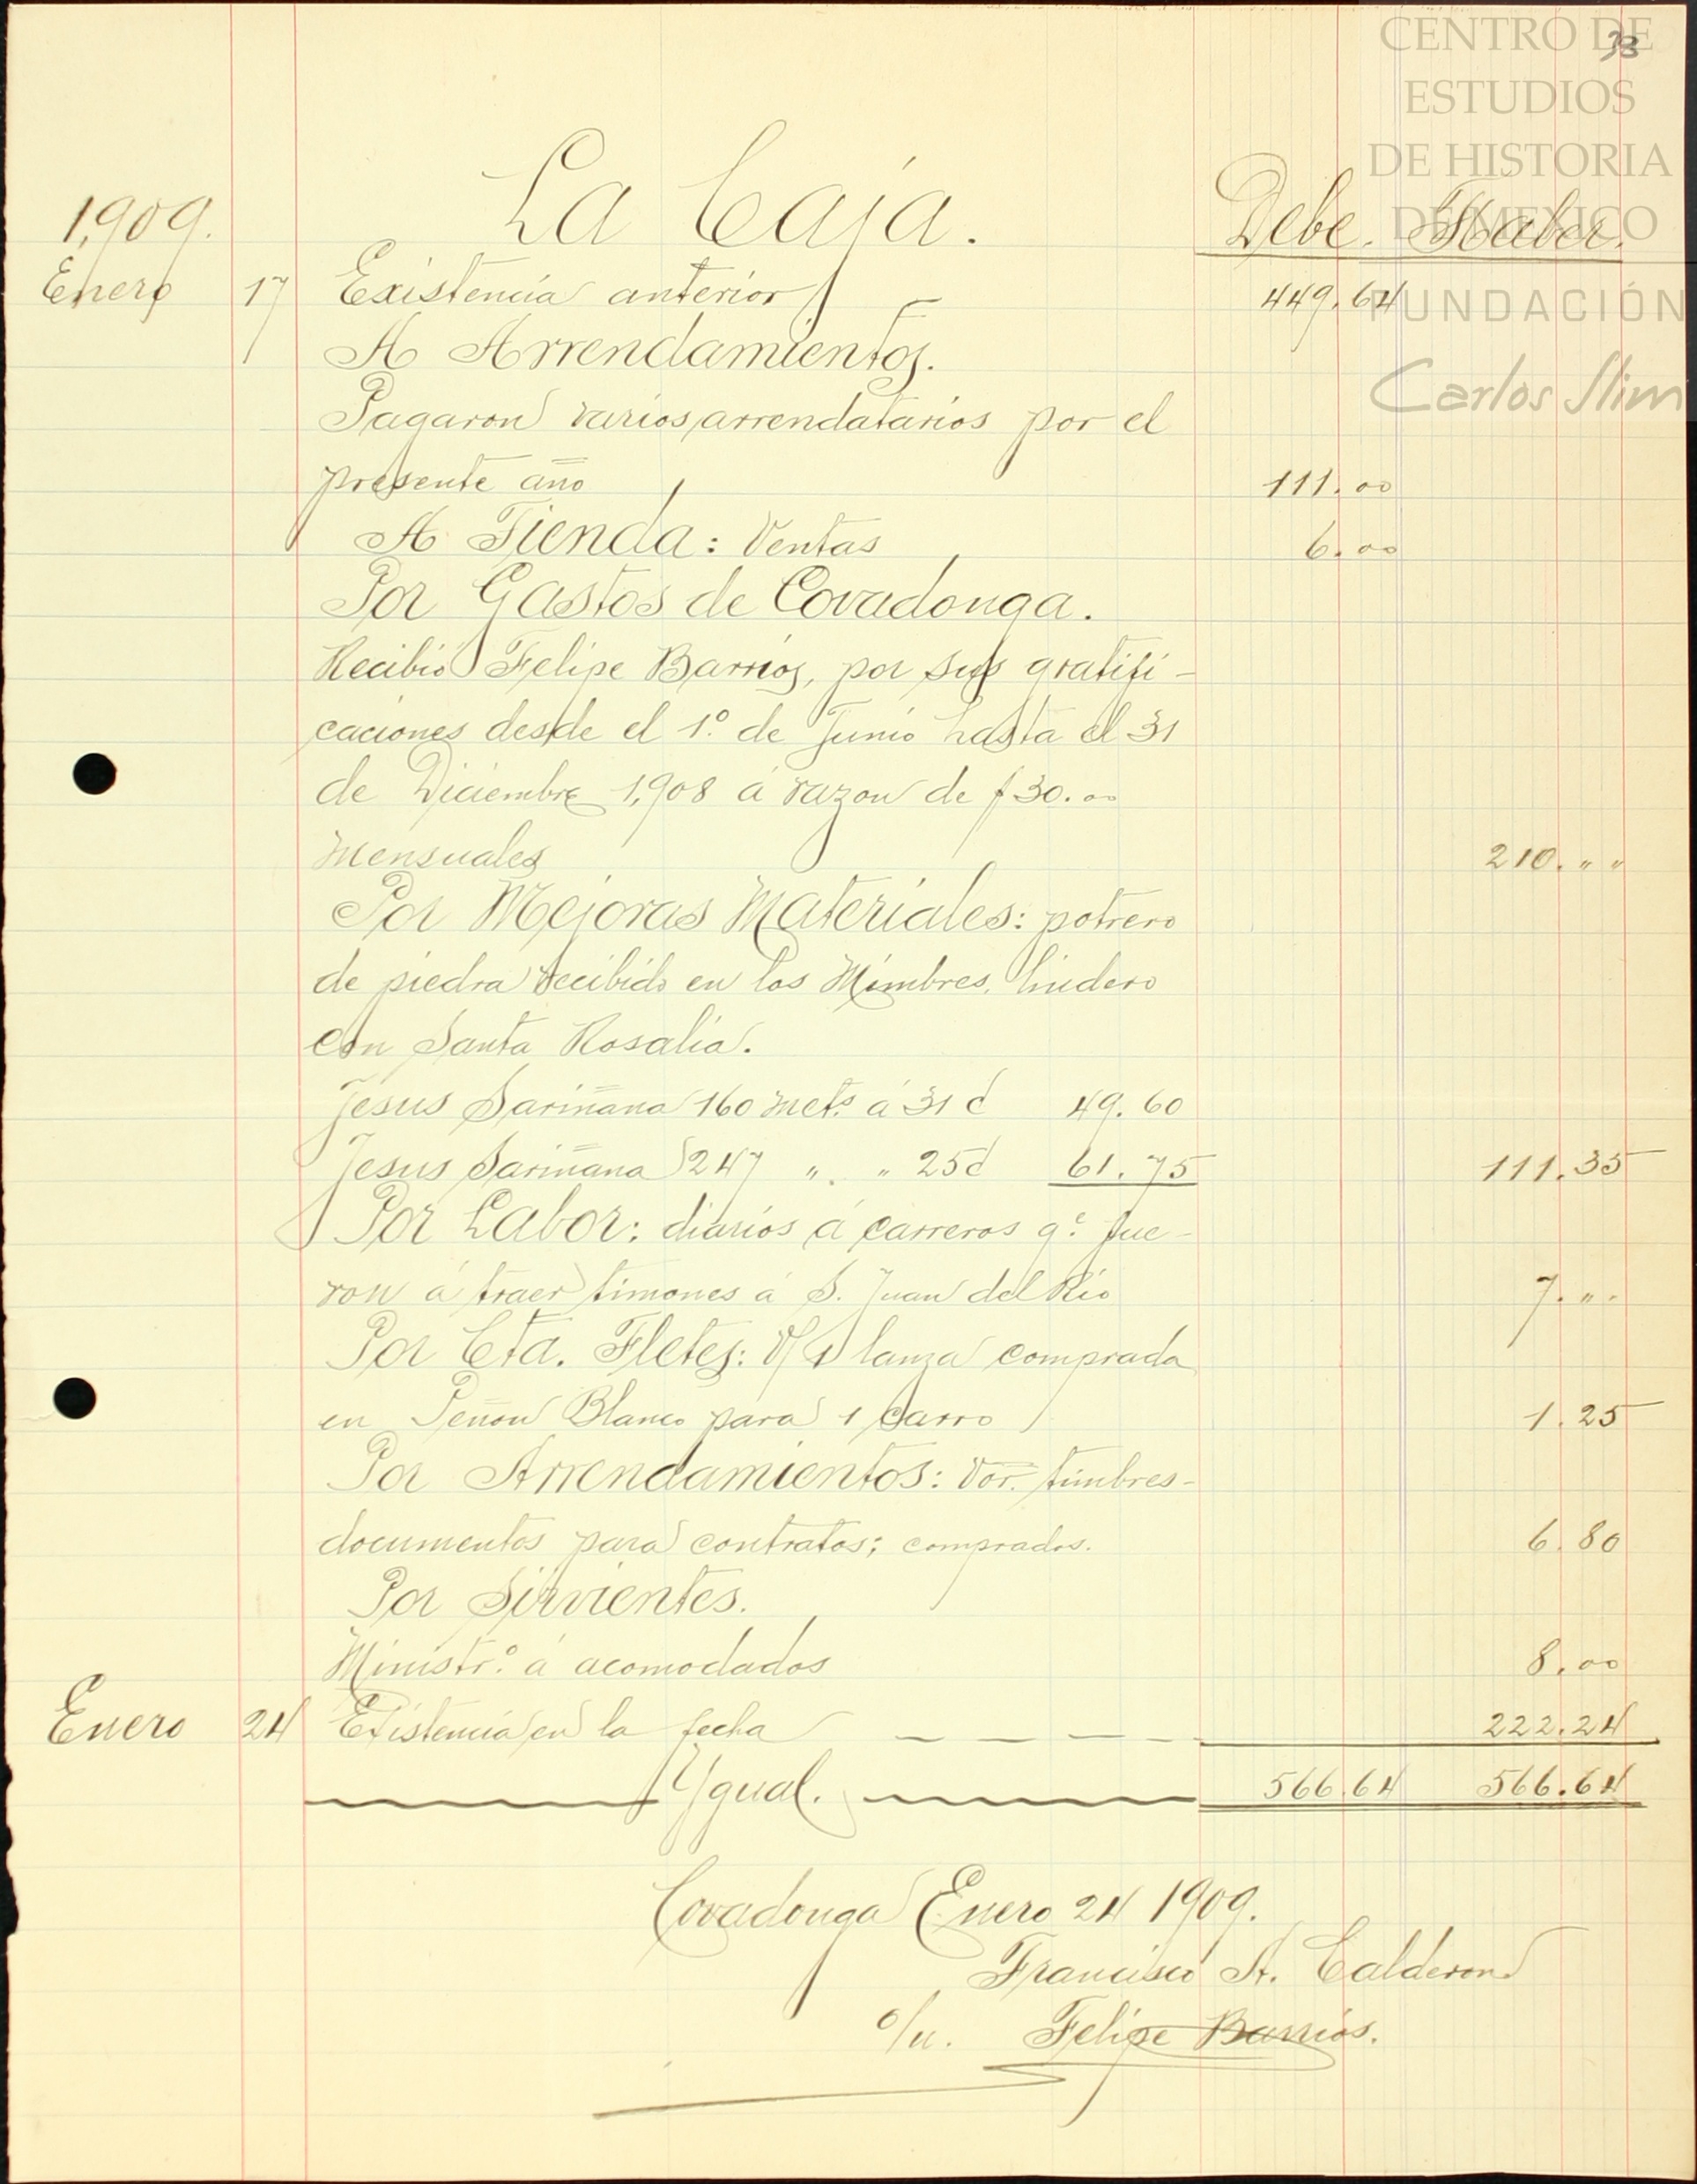 CENTRO DE
ESTUDIOS
DE HISTORIA
DE MEXICO
FUNDACIÓN
Carlos Slim
33
1,909. La Caja. Debe. Haber.
Enero 17 Existencia anterior 449.64
A Arrendamientos.
Pagaron varios arrendatarios por el
presente año 111.00
A Tienda: Ventas 6.00
Por Gastos de Covadonga.
Recibió Felipe Barrios, por sus gratifi-
caciones desde el 1º. de Junio hasta el 31
de Diciembre 1,908 á razon de $30.00
mensuales 210. " "
Por Mejoras Materiales: potrero
de piedra recibido en los Mimbres, lindero
con Santa Rosalia.
Jesus Sariñana 160 mets. á 31 ¢ 49.60
Jesus Sariñana 247 " " 25¢ 61.75 111.35
Por Labor: diarios á carreros q.e fue-
ron á traer timones á S. Juan del Rio 7. " "
Por Cta. Fletes: V/ 1 lanza comprada
en Peñon Blanco para 1 carro 1.25
Por Arrendamientos: Vor. timbres-
documentos para contratos; comprados. 6.80
Por Sirvientes.
Ministr.o á acomodados 8.00
Enero 24 Existencia en la fecha 222.24
Ygual. 566.64 566.64
Covadonga Enero 24 1909.
Francisco A. Calderon
o/n. Felipe Barrios.